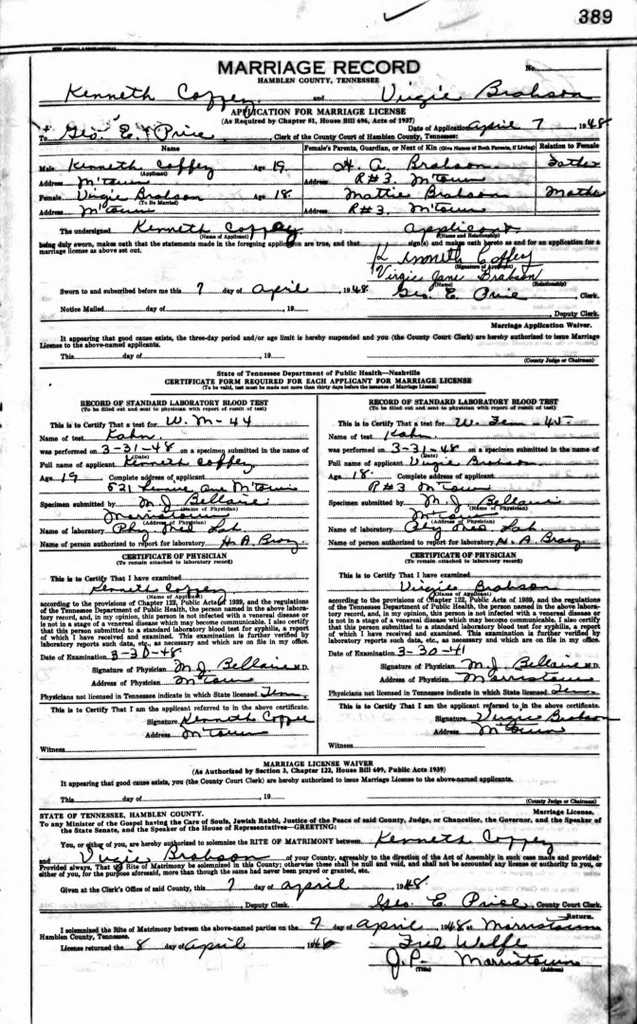 389
MARRIAGE RECORD
HAMBLEN COUNTY, TENNESSEE
No.
Kenneth Coffey and Virgie Brabson
APPLICATION FOR MARRIAGE LICENSE
(As Required by Chapter 81, House Bill 696, Acts of 1937)
Date of Application April 7 1948
To Geo. E. Price, Clerk of the County Court of Hamblen County, Tennessee:
Name Female's Parents, Guardian, or Next of Kin (Give Names of Both Parents, if Living) Relation to Female
Male Kenneth Coffey Age 19 H. A. Brabson Father
(Applicant)
Address M'town Address R#3. M'town
Female Virgie Brabson Age 18 Mattie Brabson Mother
(To Be Married)
Address M'town Address R#3. M'town
The undersigned Kenneth Coffey applicant
(Name of Applicant) (Name and Relationship)
being duly sworn, makes oath that the statements made in the foregoing application are true, and that sign(s) and makes oath hereto as and for an application for a
marriage license as above set out.
Kenneth Coffey
(Signature of Applicant)
Virgie Jane Brabson
(Name) (Relationship)
Sworn to and subscribed before me this 7 day of April, 1948 Geo. E. Price, Clerk.
Notice Mailed day of , 19 , Deputy Clerk.
Marriage Application Waiver.
It appearing that good cause exists, the three-day period and/or age limit is hereby suspended and you (the County Court Clerk) are hereby authorized to issue Marriage
License to the above-named applicants.
This day of , 19
(County Judge or Chairman)
State of Tennessee Department of Public Health—Nashville
CERTIFICATE FORM REQUIRED FOR EACH APPLICANT FOR MARRIAGE LICENSE
(To be valid, test must be made not more than thirty days before the issuance of Marriage License)
RECORD OF STANDARD LABORATORY BLOOD TEST
(To be filled out and sent to physician with report of result of test)
This is to Certify That a test for W. M-44
Name of test Kahn.
was performed on 3-31-48 on a specimen submitted in the name of
(Date)
Full name of applicant Kenneth Coffey
Age 19 Complete address of applicant
M'town
Specimen submitted by M. J. Bellaire
(Name of Physician)
Morristown
(Address of Physician)
Name of laboratory Phy. Med Lab
Name of person authorized to report for laboratory H. A.
CERTIFICATE OF PHYSICIAN
(To remain attached to laboratory record)
This is to Certify That I have examined
Kenneth Coffey
(Name of Applicant)
according to the provisions of Chapter 122, Public Acts of 1939, and the regulations
of the Tennessee Department of Public Health, the person named in the above labora-
tory record, and, in my opinion, this person is not infected with a venereal disease or
is not in a stage of a venereal disease which may become communicable. I also certify
that this person submitted to a standard laboratory blood test for syphilis, a report
of which I have received and examined. This examination is further verified by
laboratory reports such date, etc., as necessary and which are on file in my office.
Date of Examination 3-30-48
Signature of Physician M. J. Bellaire M.D.
Address of Physician M'town
Physicians not licensed in Tennessee indicate in which State licensed Tenn.
This is to Certify That I am the applicant referred to in the above certificate.
Signature Kenneth Coffee
Address M'town
Witness
RECORD OF STANDARD LABORATORY BLOOD TEST
(To be filled out and sent to physician with report of result of test)
This is to Certify That a test for W. Fem-45-
Name of test Kahn.
was performed on 3-31-48 on a specimen submitted in the name of
(Date)
Full name of applicant Virgie Brabson
Age 18. Complete address of applicant
R#3 M'town
Specimen submitted by M. J. Bellaire
(Name of Physician)
M'town
(Address of Physician)
Name of laboratory Phy. Med Lab
Name of person authorized to report for laboratory H. A.
CERTIFICATE OF PHYSICIAN
(To remain attached to laboratory record)
This is to Certify That I have examined
Virgie Brabson
(Name of Applicant)
according to the provisions of Chapter 122, Public Acts of 1939, and the regulations
of the Tennessee Department of Public Health, the person named in the above labora-
tory record, and, in my opinion, this person is not infected with a venereal disease or
is not in a stage of a venereal disease which may become communicable. I also certify
that this person submitted to a standard laboratory blood test for syphilis, a report
of which I have received and examined. This examination is further verified by
laboratory reports such date, etc., as necessary and which are on file in my office.
Date of Examination 3-30-41
Signature of Physician M. J. Bellaire M.D.
Address of Physician Morristown
Physicians not licensed in Tennessee indicate in which State licensed Tenn.
This is to Certify That I am the applicant referred to in the above certificate.
Signature Virgie Brabson
Address M'town
Witness
MARRIAGE LICENSE WAIVER
(As Authorized by Section 3, Chapter 122, House Bill 609, Public Acts 1939)
It appearing that good cause exists, you (the County Court Clerk) are hereby authorized to issue Marriage License to the above-named applicants.
This day of , 19
(County Judge or Chairman)
STATE OF TENNESSEE, HAMBLEN COUNTY. Marriage License.
To any Minister of the Gospel having the Care of Souls, Jewish Rabbi, Justice of the Peace of said County, Judge, or Chancellor, the Governor, and the Speaker of
the State Senate, and the Speaker of the House of Representatives—GREETING:
You, or either of you, are hereby authorized to solemnize the RITE OF MATRIMONY between Kenneth Coffey
and Virgie Brabson of your County, agreeably to the direction of the Act of Assembly in such case made and provided
Provided always, That the Rite of Matrimony be solemnized in this County; otherwise these shall be null and void, and shall not be accounted any license or authority to you, or
either of you, for the purpose aforesaid, more than though the same had never been prayed or granted, etc.
Given at the Clerk's Office of said County, this 7 day of April 1948.
, Deputy Clerk. Geo. E. Price, County Court Clerk.
Return.
I solemnized the Rite of Matrimony between the above-named parties on the 7 day of April 1948 at Morristown
Hamblen County, Tennessee.
License returned the 8 day of April, 1948 Fred Wolfe
J.P. Morristown
(Title) (Address)